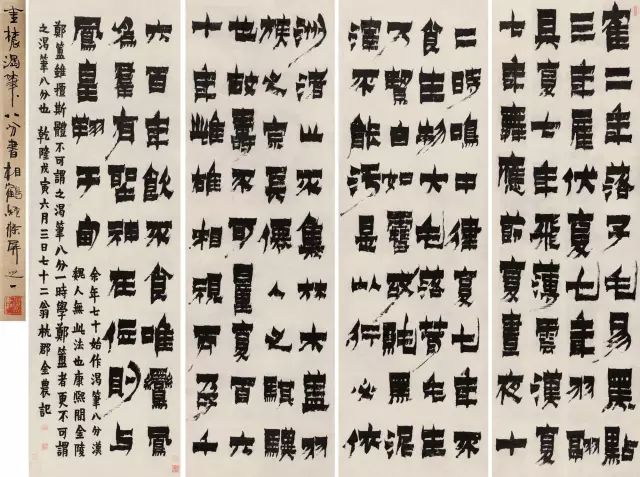 隺二年落子毛易黑點
三年雇伏夏七年羽翮
具夏七年飛薄雲漢夏
七年舞應節夏晝夜十
二時鳴中律夏七年不
食生物大毛落茸毛生
乃白如雪故黑泥
渾不能污是以行必依
洲渚止不集林木蓋羽
族之宗長僊人之騏驥
也故壽不可量夏百六
十年雌雄相視而孕千
六百年飲不食唯鸞鳳
爲羣有聖神在位則與
鳳皇翔于甸
余年七十始作渴筆八分漢
魏人無此法也康熙間金陵
鄭簠雖擅斯體不可謂之渴筆八分一時學鄭簠者更不可謂
之渴筆八分也 乾隆戊寅六月三日七十二翁杭郡金農記
金農渴筆八分書相鶴經條屏之一